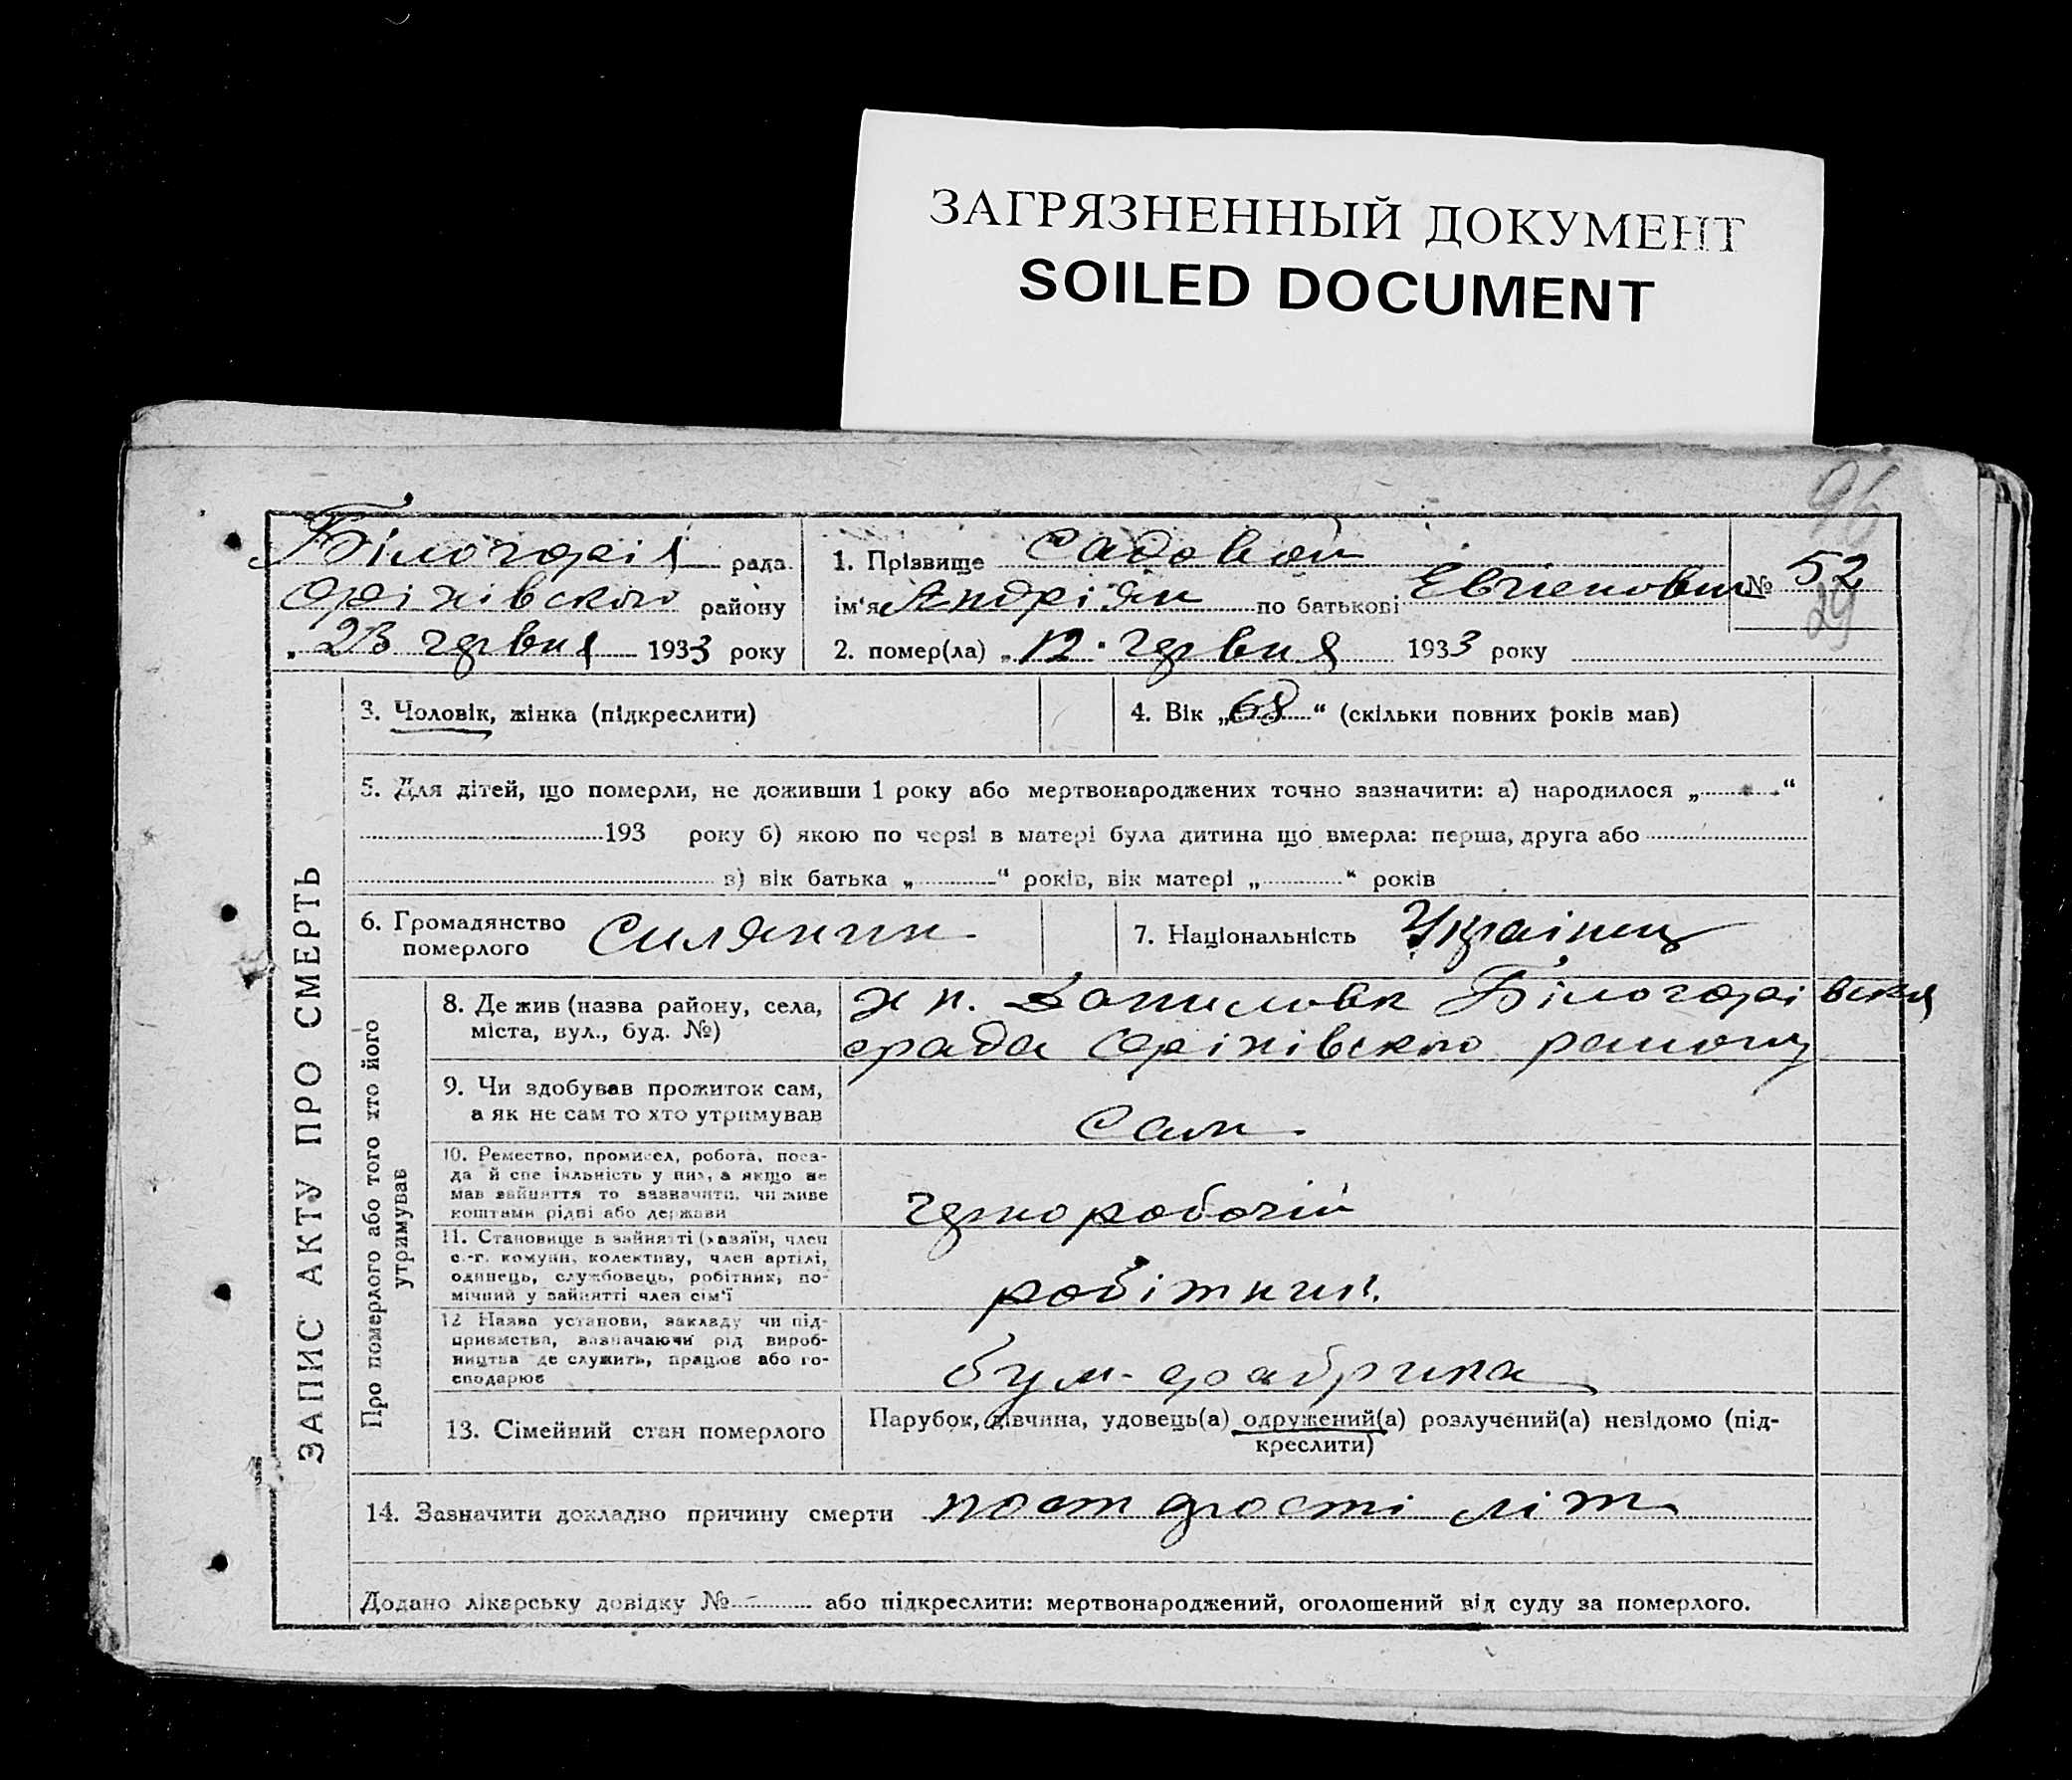 ЗАГРЯЗНЕННЫЙ ДОКУМЕНТ
SOILED DOCUMENT
96
Білогорія рада
Оріхівського району
„ 23 червня 1933 року
1. Прізвище Садовой
ім'я Андріян по батькові Евгіенович
№ 52
29
2. помер(ла) „ 12 " червня 1933 року
ЗАПИС АКТУ ПРО СМЕРТЬ
3. Чоловік, жінка (підкреслити)
4. Вік „ 68 “ (скільки повних років мав)
5. Для дітей, що померли, не доживши 1 року або мертвонароджених точно зазначити: а) народилося „ “
193 року б) якою по черзі в матері була дитина що вмерла: перша, друга або
в) вік батька „ “ років, вік матері „ “ років
6. Громадянство
померлого Силянин
7. Національність Украінец
Про померлого або того хто його
утримував
8. Де жив (назва району, села,
міста, вул., буд. №)
х п. Білогорівская
рада Оріхівского району
9. Чи здобував прожиток сам,
а як не сам то хто утримував
Сам
10. Ремество, промисел, робота, поса-
да й спеціяльність у них, а якщо не
мав зайняття то зазначити, чи живе
коштами рідні або держави
чорноробочий
11. Становище в зайнятті (хазяїн, член
с.-г. комуни, колективу, член артілі,
одинець, службовець, робітник, по-
мічний у зайнятті член сім'ї
робітник.
12 Назва установи, закладу чи під-
приємства, зазначаючи рід вироб-
ництва де служить, працює або го-
сподарює
бум-фабрика
13. Сімейний стан померлого
Парубок, дівчина, удовець(а) одружений(а) розлучений(а) невідомо (під-
креслити)
14. Зазначити докладно причину смерти літ
Додано лікарську довідку № або підкреслити: мертвонароджений, оголошений від суду за померлого.